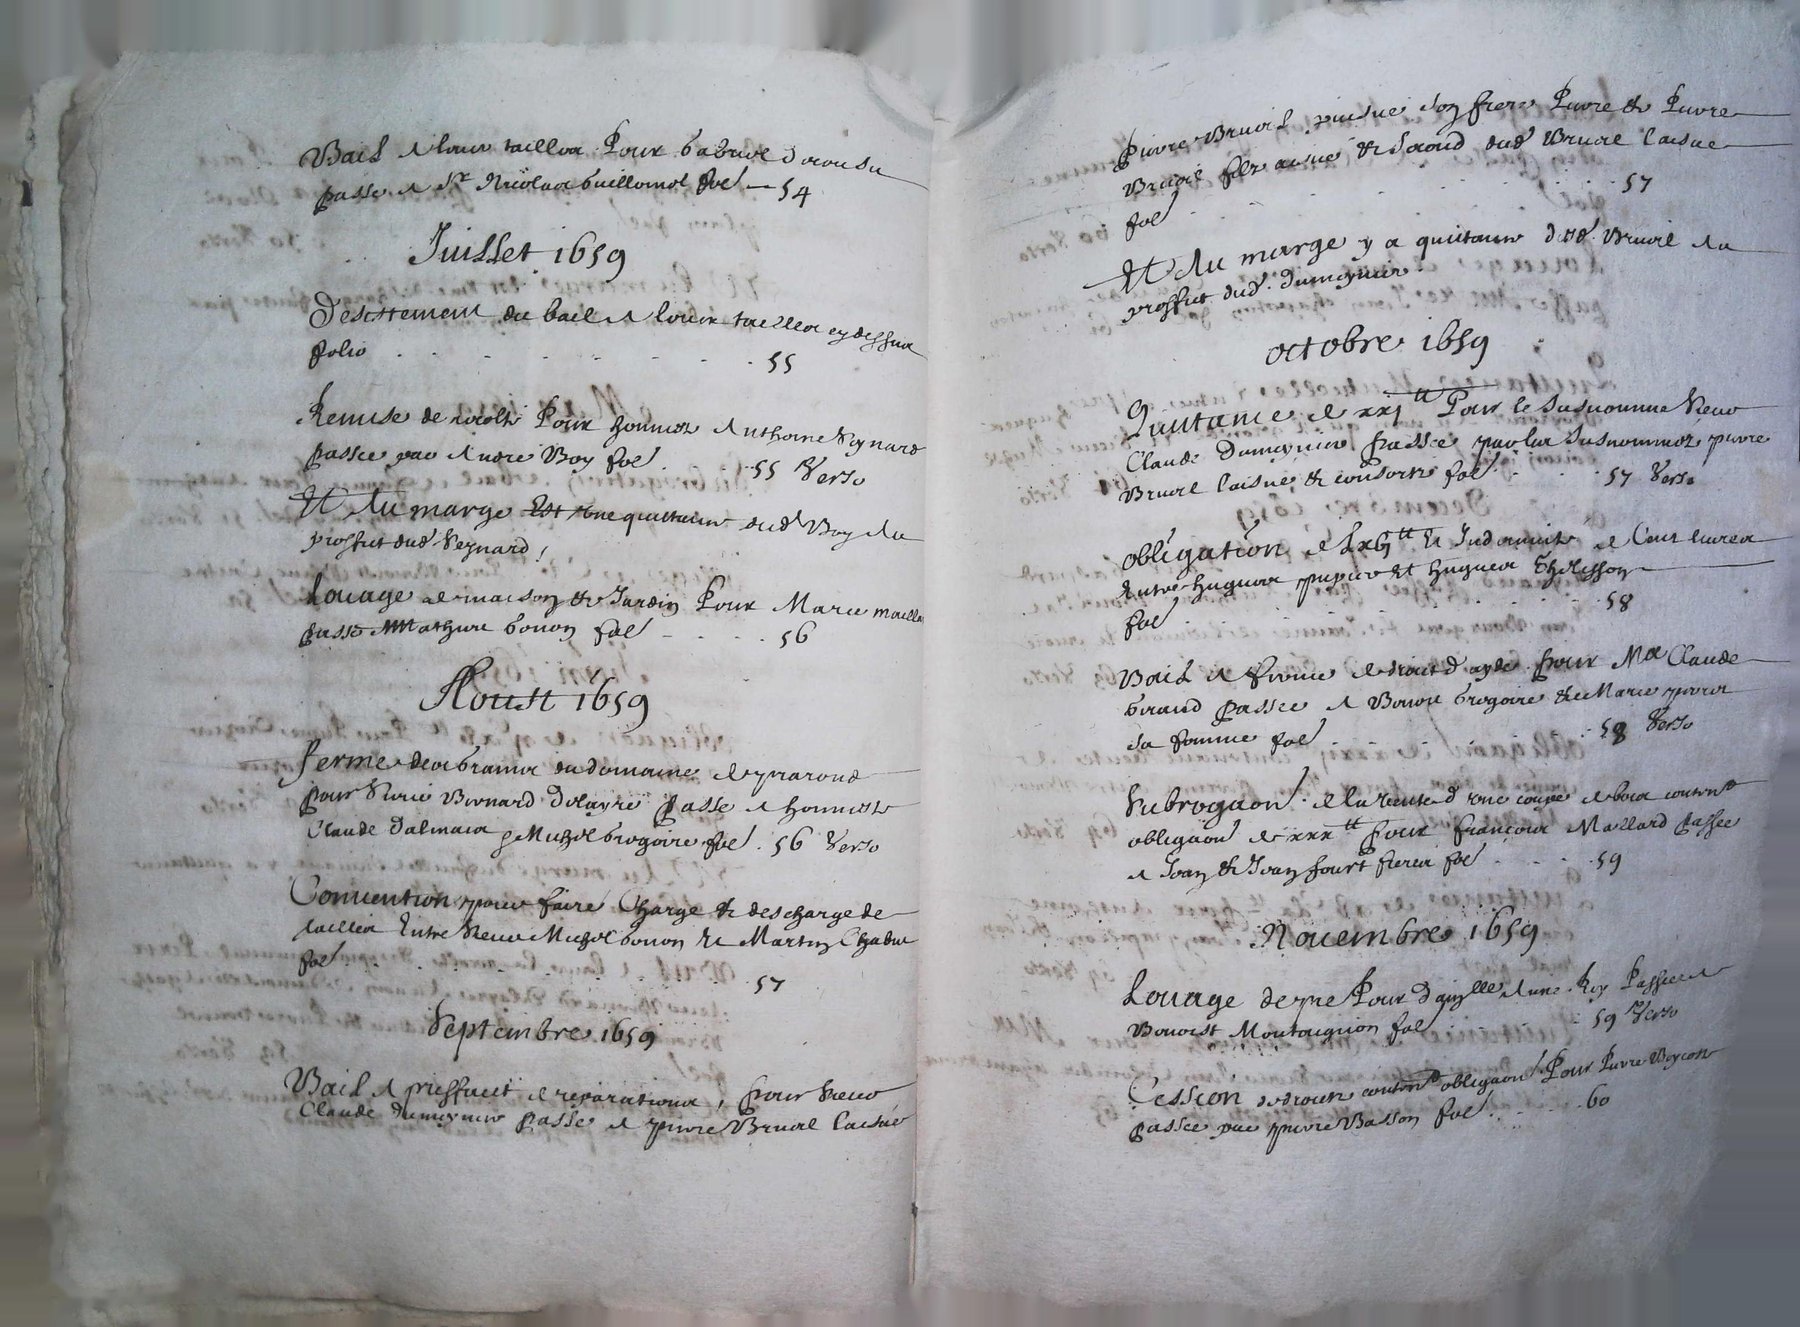 Bail a leuer tailler Pour Gabriel
passe a Sr Nicolas Guillomot fol 54
Juillet 1659
Desistement du bail a leuer tailler cy dessus
folio 55
Remise de recolte Pour honneste Anthoine Veynard
passee par Andre Boy fol 55 Verso
Et Au marge Est une quittance dud Boy au
proffict dud Veynard
Louage de maison et Jardin Pour Marie
passé Mathieu Gonon fol 56
Aoust 1659
ferme des grains du domaine de
pour Sieur Bernard Delayre passe a honneste
Claude Dalmais p Michel Gregoire fol 56 Verso
Conuention pour faire Charge et descharge de
tailler Entre Sieur Michel Gonon Et Martin
fol 57
Septembre 1659
Bail a prisfaict de reparations, pour Sieur
Claude Dumoynier passé a pierre Bruail laisné
Pierre Bruail puisné son frere Pierre et Pierre
Bruail filz aisné et Second dud Bruail laisné
fol 57
Et Au marge y a quittance dud Bruail Au
proffict dud Dumoynier
octobre 1659
Quittance de xxj tt Pour le Susnommé Sieur
Claude Dumoynier passee par les Susnommez pierre
Bruail laisné et consorts fol 57 Verso
obligation de Lxvj tt Et Indemnité de Cent liures
Entre hugues et hugues
fol 58
Bail a ferme de droict d ayde pour Me Claude
Giraud passee a Benoit Gregoire et Marie
sa femme fol 58 Verso
Subrogaon de la vente d une coupe de bois content
obligaon de xxx tt pour francois Mallard passee
a Jean et Jean fourt freres fol 59
Nouembre 1659
Louage de pre Pour Anne Roy Passee a
Benoist Montagnion fol 59 Verso
Cession de droicts content obligaon Pour Pierre
passee par pierre Basson fol 60